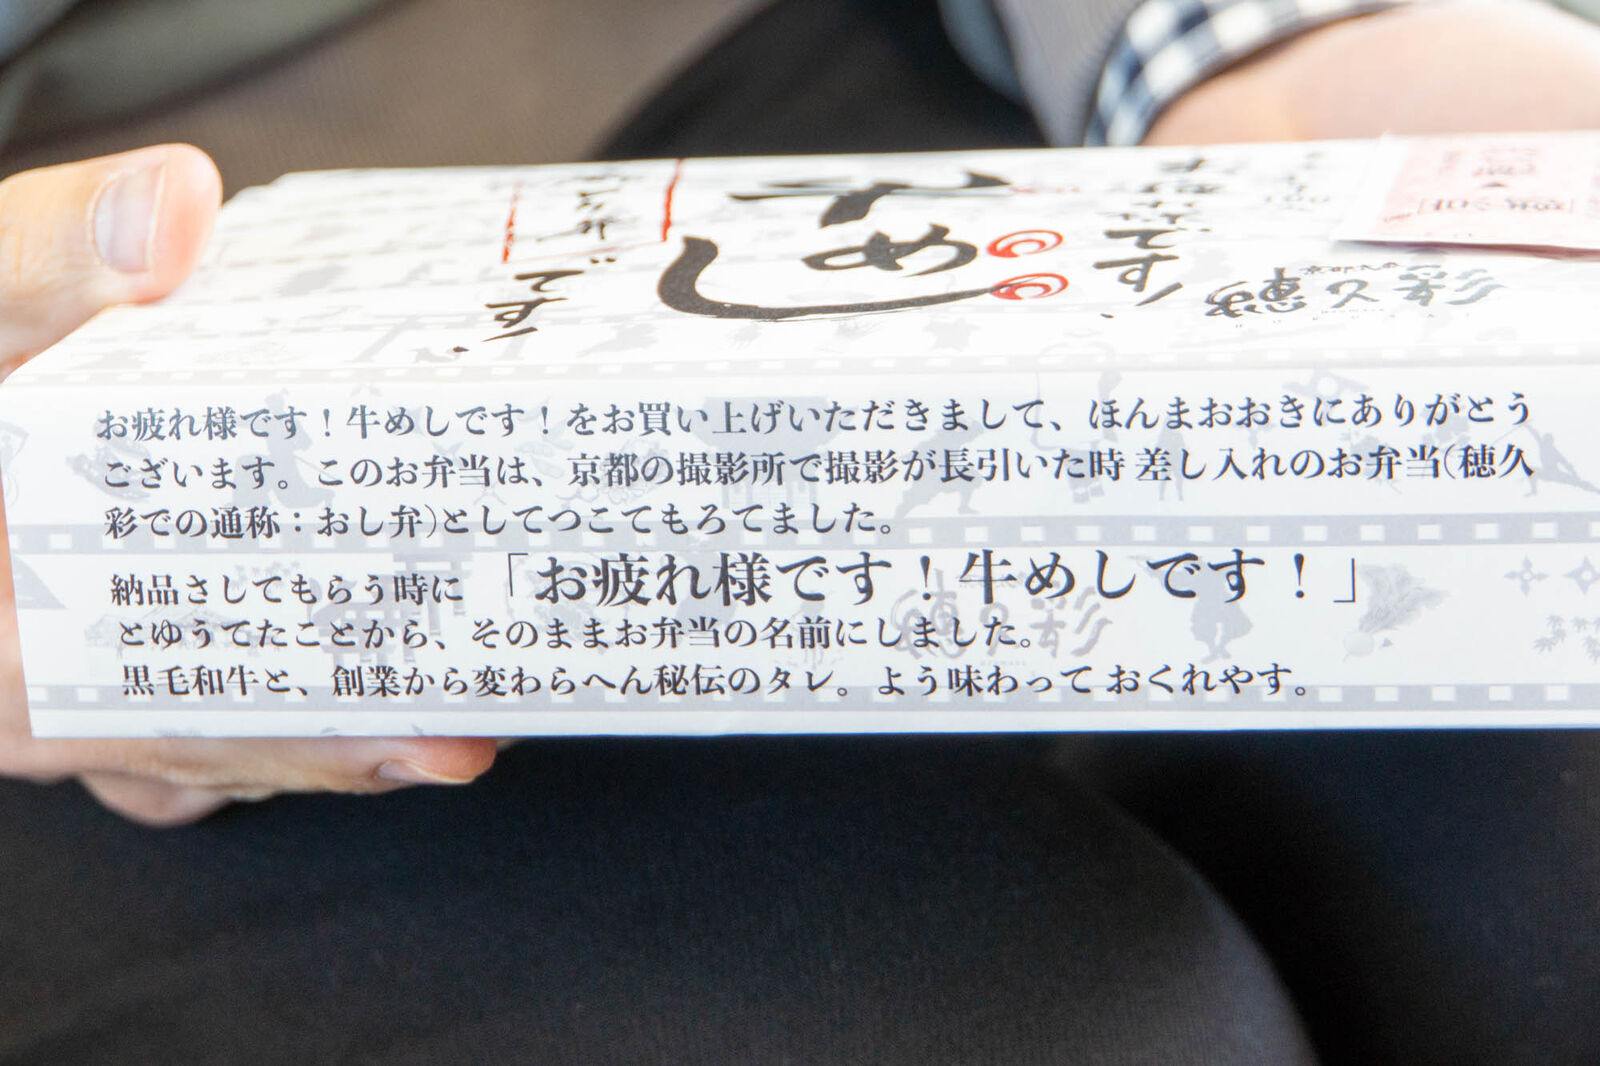 牛
めし
です!
です!
穂久彩
お疲れ様です！牛めしです！をお買い上げいただきまして、ほんまおおきにありがとう
ございます。このお弁当は、京都の撮影所で撮影が長引いた時 差し入れのお弁当(穂久
彩での通称：おし弁)としてつこてもろてました。
納品さしてもらう時に 「お疲れ様です！牛めしです！」
とゆうてたことから、そのままお弁当の名前にしました。
黒毛和牛と、創業から変わらへん秘伝のタレ。よう味わって おくれやす。